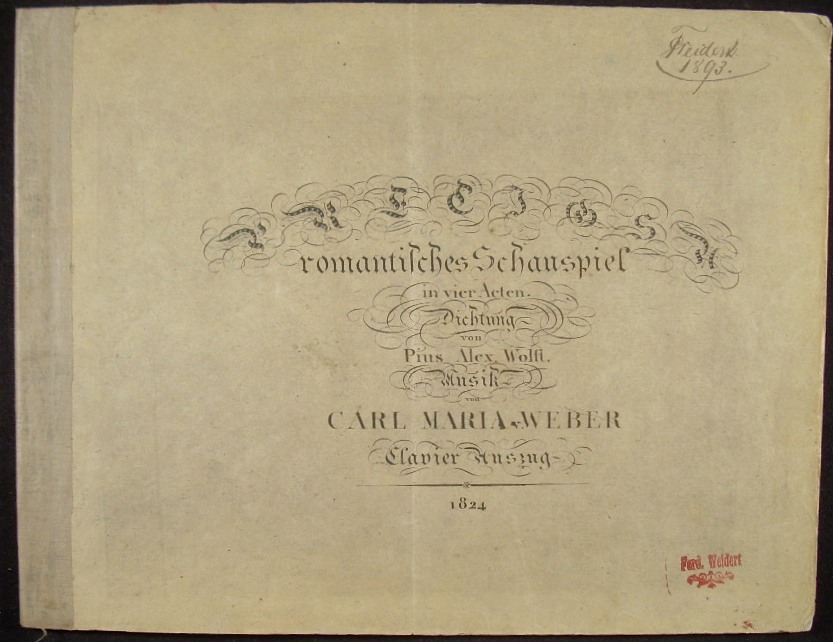 1893.
PRECIOSA
romantisches Schauspiel
in vier Acten.
Dichtung
von
Pius Alex. Wolff.
Musik
von
CARL MARIA v. WEBER
Clavier Auszug
1824
Ferd. Weidert